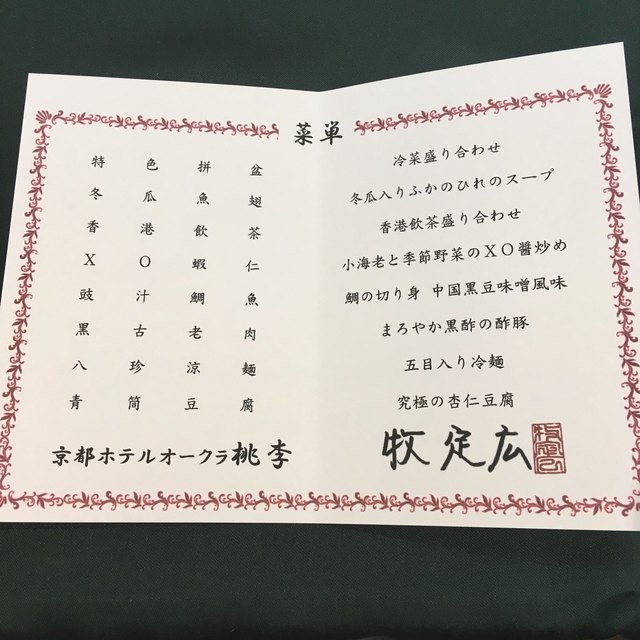 菜単
特色拼盆
冬瓜魚翅
香港飲茶
XO蝦仁
豉汁鯛魚
黒古老肉
八珍涼麺
青简豆腐
京都ホテルオークラ桃李
冷菜盛り合わせ
冬瓜入りふかのひれのスープ
香港飲茶盛り合わせ
小海老と季節野菜のXO醬炒め
鯛の切り身 中国黒豆味噌風味
まろやか黒酢の酢豚
五目入り冷麺
究極の杏仁豆腐
牧定広